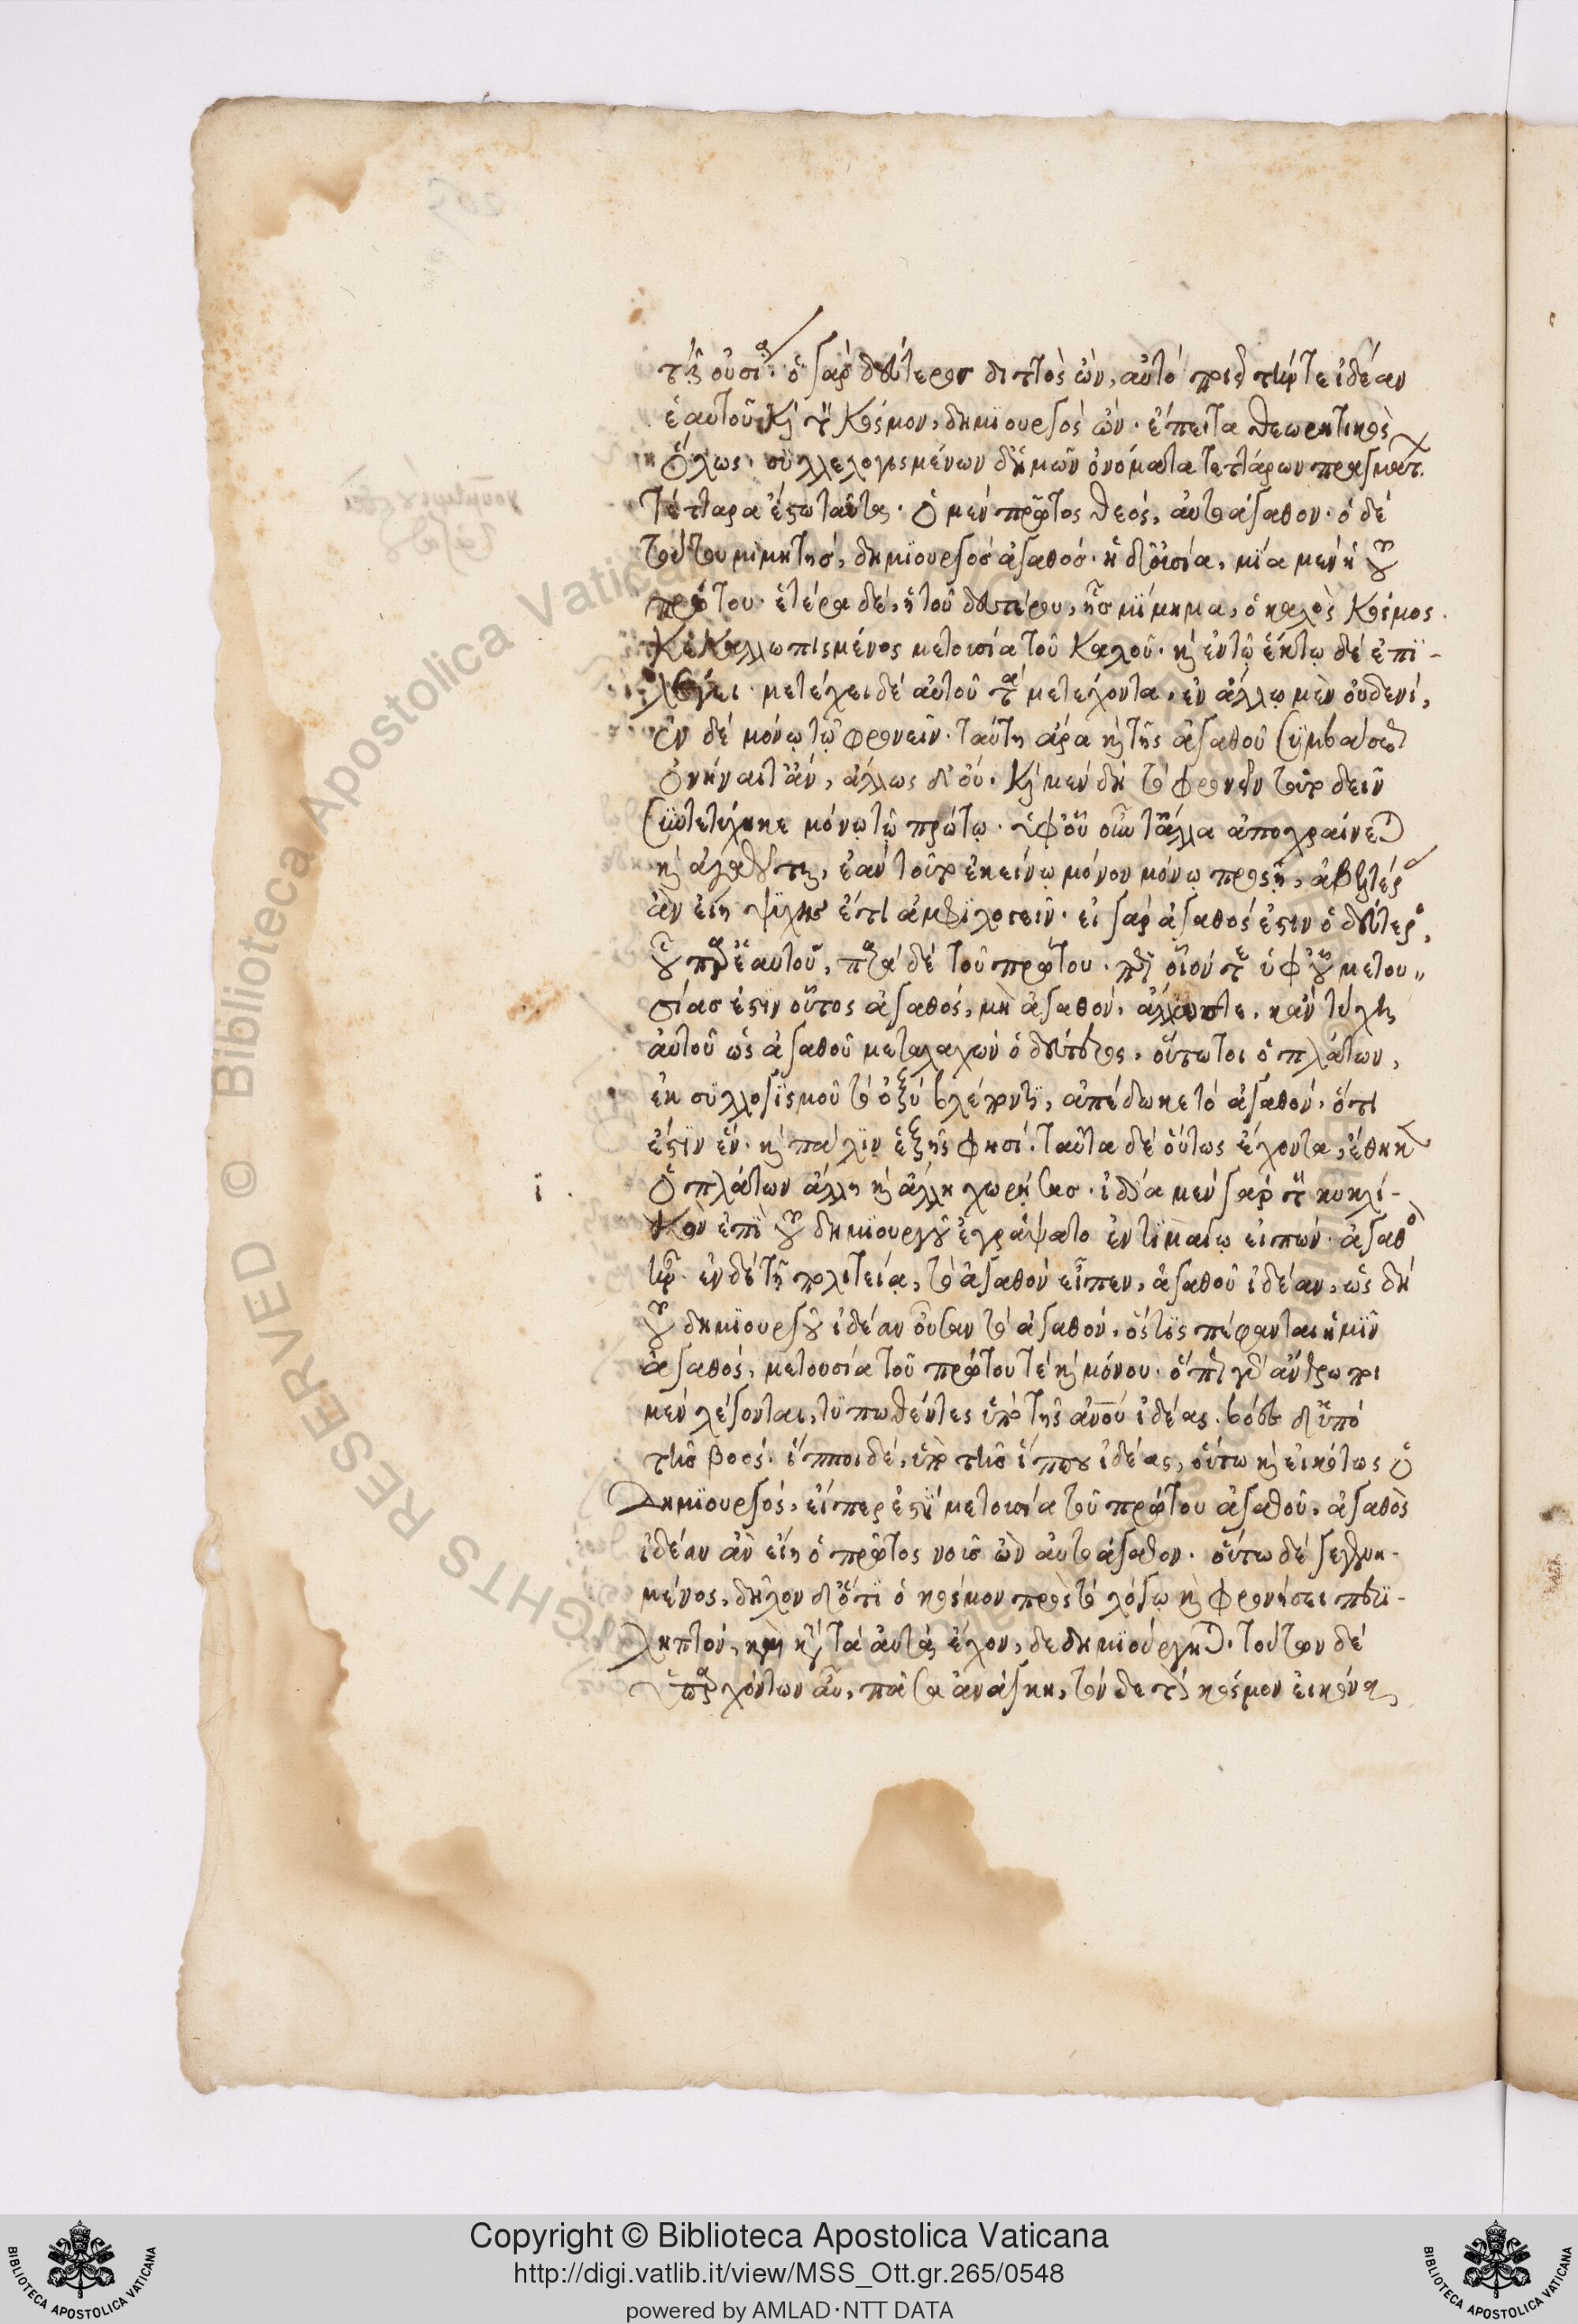 τῆς οὐσίας· ὁ γὰρ δεύτερος διττὸς ὢν, αὐτὸ ποιεῖ τήν τε ἰδέαν
ἑαυτοῦ καὶ τὸν κόσμον, δημϊουργὸς ὢν· ἔπειτα θεωρητικὸς
ὅλως· συλλελογισμένων δ' ἡμῶν ὀνόματα τεττάρων πραγμάτων
τέτταρα ἔστω ταῦτα· ὁ μὲν πρῶτος θεός, αὐτοάγαθον· ὁ δὲ
τούτου μιμητὴς, δημϊουργὸς ἀγαθός· ἡ δ' οὐσία, μία μὲν ἡ τοῦ
πρώτου· ἑτέρα δὲ, ἡ τοῦ δευτέρου, ἧς μίμημα, ὁ καλὸς κόσμος.
κεκαλλωπισμένος μετουσία τοῦ καλοῦ· καὶ ἐν τῷ ἕκτῳ δὲ ἐπι-
λέγει· μετέχει δὲ αὐτοῦ τὰ μετέχοντα, ἐν ἄλλῳ μὲν οὐδενί,
ἐν δὲ μόνῳ τῷ φρονεῖν· ταύτη ἄρα καὶ τῆς ἀγαθοῦ συμβάσεως
ὀνήναιτ' ἂν, ἄλλως δ' οὔ. καὶ μὲν δὴ τὸ φρονεῖν τοῦτο δεῖν
συντετύχηκε μόνῳ τῷ πρώτῳ· ὑφ' οὗ οὖν τἄλλα ἀποχραίνεται
καὶ ἀγαθοῦται, ἐὰν τοῦτο ἐκείνῳ μόνον μόνῳ προσῇ, ἀβέλτερας
ἂν εἴη ψυχῆς ἔτι ἀμφϊλογεῖν· εἰ γὰρ ἀγαθός ἐστιν ὁ δεύτερος,
οὐ παρ' ἑαυτοῦ, παρὰ δὲ τοῦ πρώτου· πῶς οἷόν τε ὑφ' οὗ μετου-
σίας ἐστὶν οὗτος ἀγαθός, μὴ ἀγαθόν, ἄλλως τε, κἂν τύχῃ
αὐτοῦ ὡς ἀγαθοῦ μεταλαχὼν ὁ δεύτερος, οὕτω τοι ὁ πλάτων,
ἐκ συλλογϊσμοῦ τῷ ὀξὺ βλέποντϊ, ἀπέδωκε τὸ ἀγαθὸν, ὅτι
ἐστὶν ἕν· καὶ πάλϊν ἑξῆς φησί. ταῦτα δὲ οὕτως ἔχοντα, ἔθηκε
ὁ πλάτων ἄλλη καὶ ἄλλη χωρίσας· ἰδία μὲν γὰρ τὸν κυκλι-
κὸν ἐπὶ τοῦ δημϊουργοῦ ἐγράψατο ἐν τϊμαίῳ εἰπών· ἀγαθὸς
ἦν· ἐν δὲ τῇ πολιτεία, τὸ ἀγαθὸν εἶπεν, ἀγαθοῦ ἰδέαν, ὡς δὴ
τοῦ δημϊουργοῦ ἰδέαν οὖσαν τὸ ἀγαθόν, ὅστϊς πέφανται ἡμῖν
ἀγαθός, μετουσία τοῦ πρώτου τε καὶ μόνου· ὥσπερ γὰρ ἄνθρωποι
μὲν λέγονται, τυπωθέντες ὑπὸ τῆς ἀνου ἰδέας, βόες δ' ὑπὸ
τῆς βοός· ἵπποι δὲ, ὑπὸ τῆς ἵππου ἰδέας, οὕτω καὶ εἰκότως ὁ
δημϊουργός, εἴπερ ἐστὶ μετουσία τοῦ πρώτου ἀγαθοῦ, ἀγαθὸς
ἰδέαν ἂν εἴη ὁ πρῶτος νοῦς ὢν αὐτοάγαθον. οὕτω δὲ γεγενη-
μένος, δῆλον δ' ὅτι ὁ κόσμον πρὸς τὸ λόγῳ καὶ φρονήσει περϊ-
ληπτὸν, καὶ κατὰ τὰ αὐτὰ ἔχον, δεδημϊούργηται. τούτων δὲ
ὑπαρχόντων αὖ, πᾶσα ἀνάγκη, τόνδε τὸν κόσμον εἰκόνα